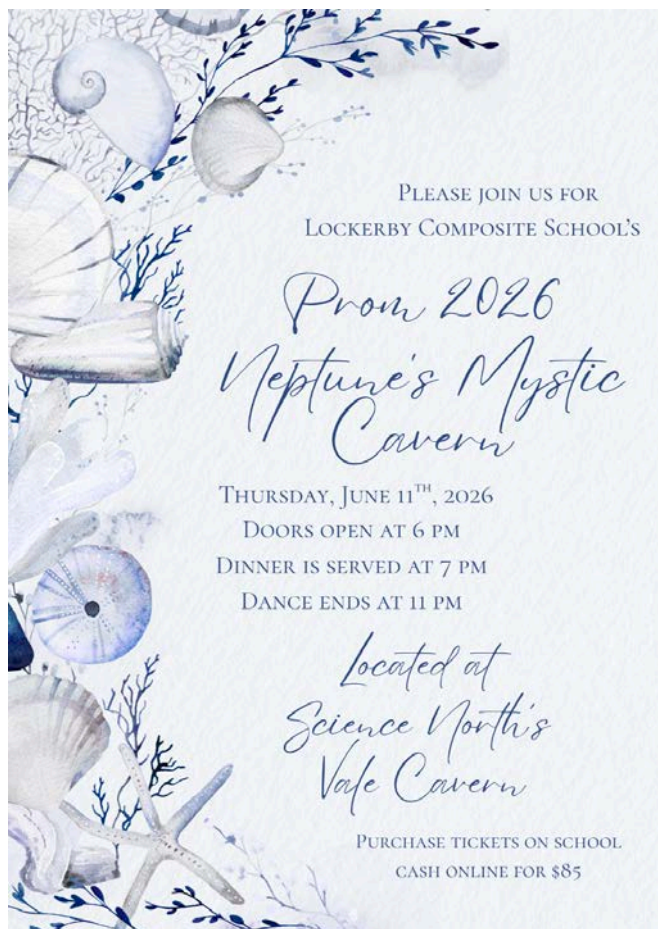 Please join us for
Lockerby Composite School's
Prom 2026
Neptune's Mystic
Cavern
Thursday, June 11TH, 2026
Doors open at 6 pm
Dinner is served at 7 pm
Dance ends at 11 pm
Located at
Science North's
Vale Cavern
Purchase tickets on school
cash online for $85